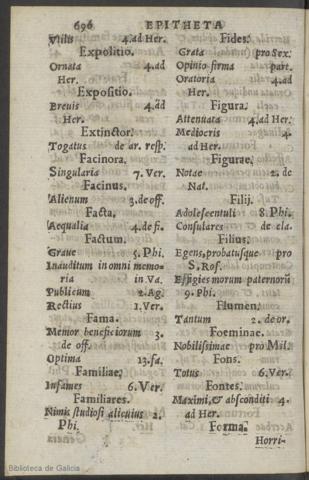 696 EPITHETA
Vtilis 4.ad Her.
Expolitio.
Ornata 4.ad
Her.
Expositio.
Breuis 4.ad
Her.
Extinctor.
Togatus de ar. resp.
Facinora.
Singularia 7. Ver.
Facinus.
Alienum 3.de off.
Facta.
Aequalia 4.de fi.
Factum.
Graue 5. Phi.
Inauditum in omni memo-
ria in Va.
Publicum 2. Ag.
Rectius 1. Ver.
Fama.
Memor beneficiorum 3.
de off.
Optima 13.fa.
Familiae,
Infames 6. Ver.
Familiares.
Nimis studiosi alicuius 2.
Phi.
Fides.
Grata pro Sex.
Opinio firma part.
Oratoria 4.ad
Her.
Figura.
Attenuata 4.ad Her.
Mediocris 4.
ad Her.
Figurae.
Notae 2. de
Nat.
Filij.
Adolescentuli 8. Phi.
Consulares de cla.
Filius.
Egens, probatusque pro
S. Rof.
Effigies morum paternorū
9. Phi.
Flumen.
Tantum 2. de or.
Foeminae.
Nobilissimae pro Mil.
Fons.
Totus 6. Ver.
Fontes.
Maximi, & absconditi 4.
ad Her.
Forma.
Horri-
Biblioteca de Galicia